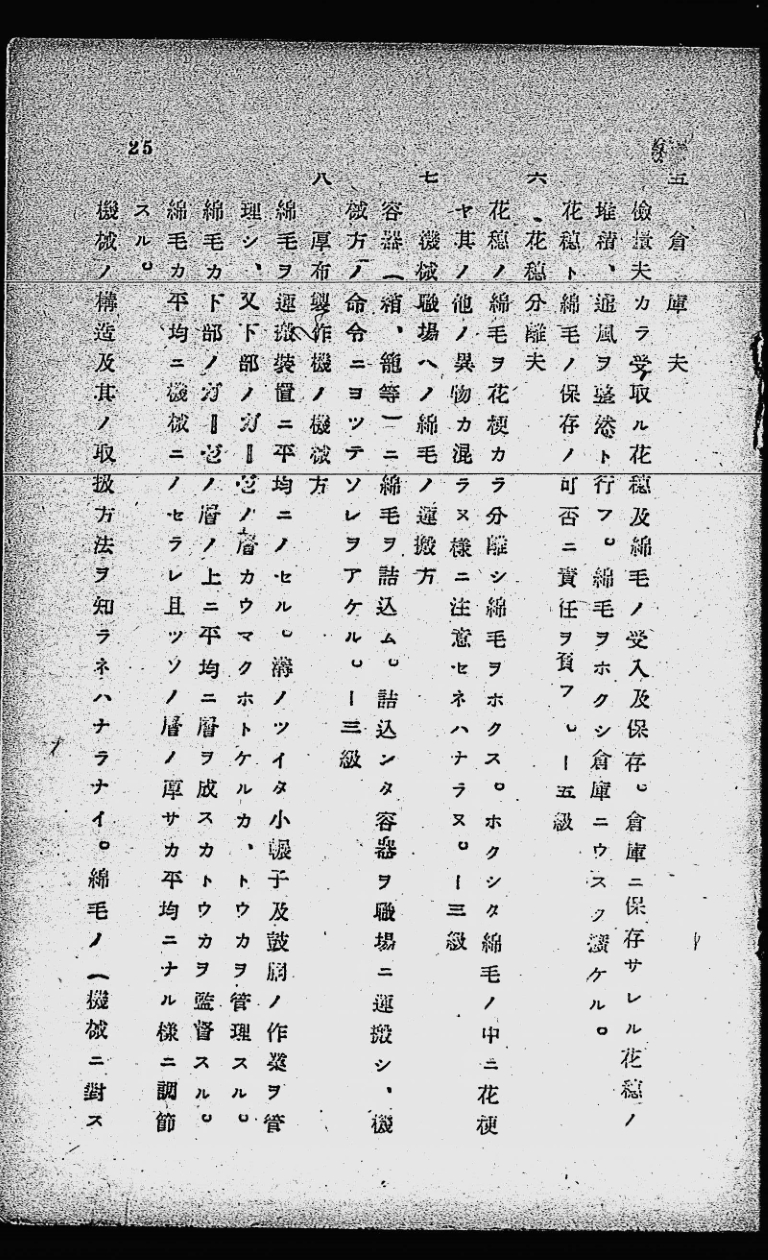 25
五 倉庫夫
檢量夫カラ受取ル花穗及綿毛ノ受入及保存。倉庫ニ保存サレル花穗ノ
堆積、通風ヲ整然ト行フ。綿毛ヲホクシ倉庫ニウスク擴ケル。
花穗ト綿毛ノ保存ノ可否ニ責任ヲ負フ。ー五級
六、花穗分離夫
花穗ノ綿毛ヲ花梗カラ分離シ綿毛ヲホクス。ホクシタ綿毛ノ中ニ花梗
ヤ其ノ他ノ異物カ混ラヌ様ニ注意セネハナラヌ。ー三級
七 機械職場ヘノ綿毛ノ運搬方
容器(箱、籠等)ニ綿毛ヲ詰込ム。詰込ンタ容器ヲ職場ニ運搬シ、機
械方ノ命令ニヨツテソレヲアケル。ー三級
八 厚布製作機ノ機械方
綿毛ヲ運搬装置ニ平均ニノセル。溝ノツイタ小輾子及鼓胴ノ作業ヲ管
理シ、又下部ノガーゼノ層カウマクホトケルカ、トウカヲ管理スル。
綿毛カ下部ノガーゼノ層ノ上ニ平均ニ層ヲ成スカトウカヲ監督スル。
綿毛カ平均ニ機械ニノセラレ且ツソノ層ノ厚サカ平均ニナル様ニ調節
スル。
機械ノ構造及其ノ取扱方法ヲ知ラネハナラナイ。綿毛ノ(機械ニ對ス